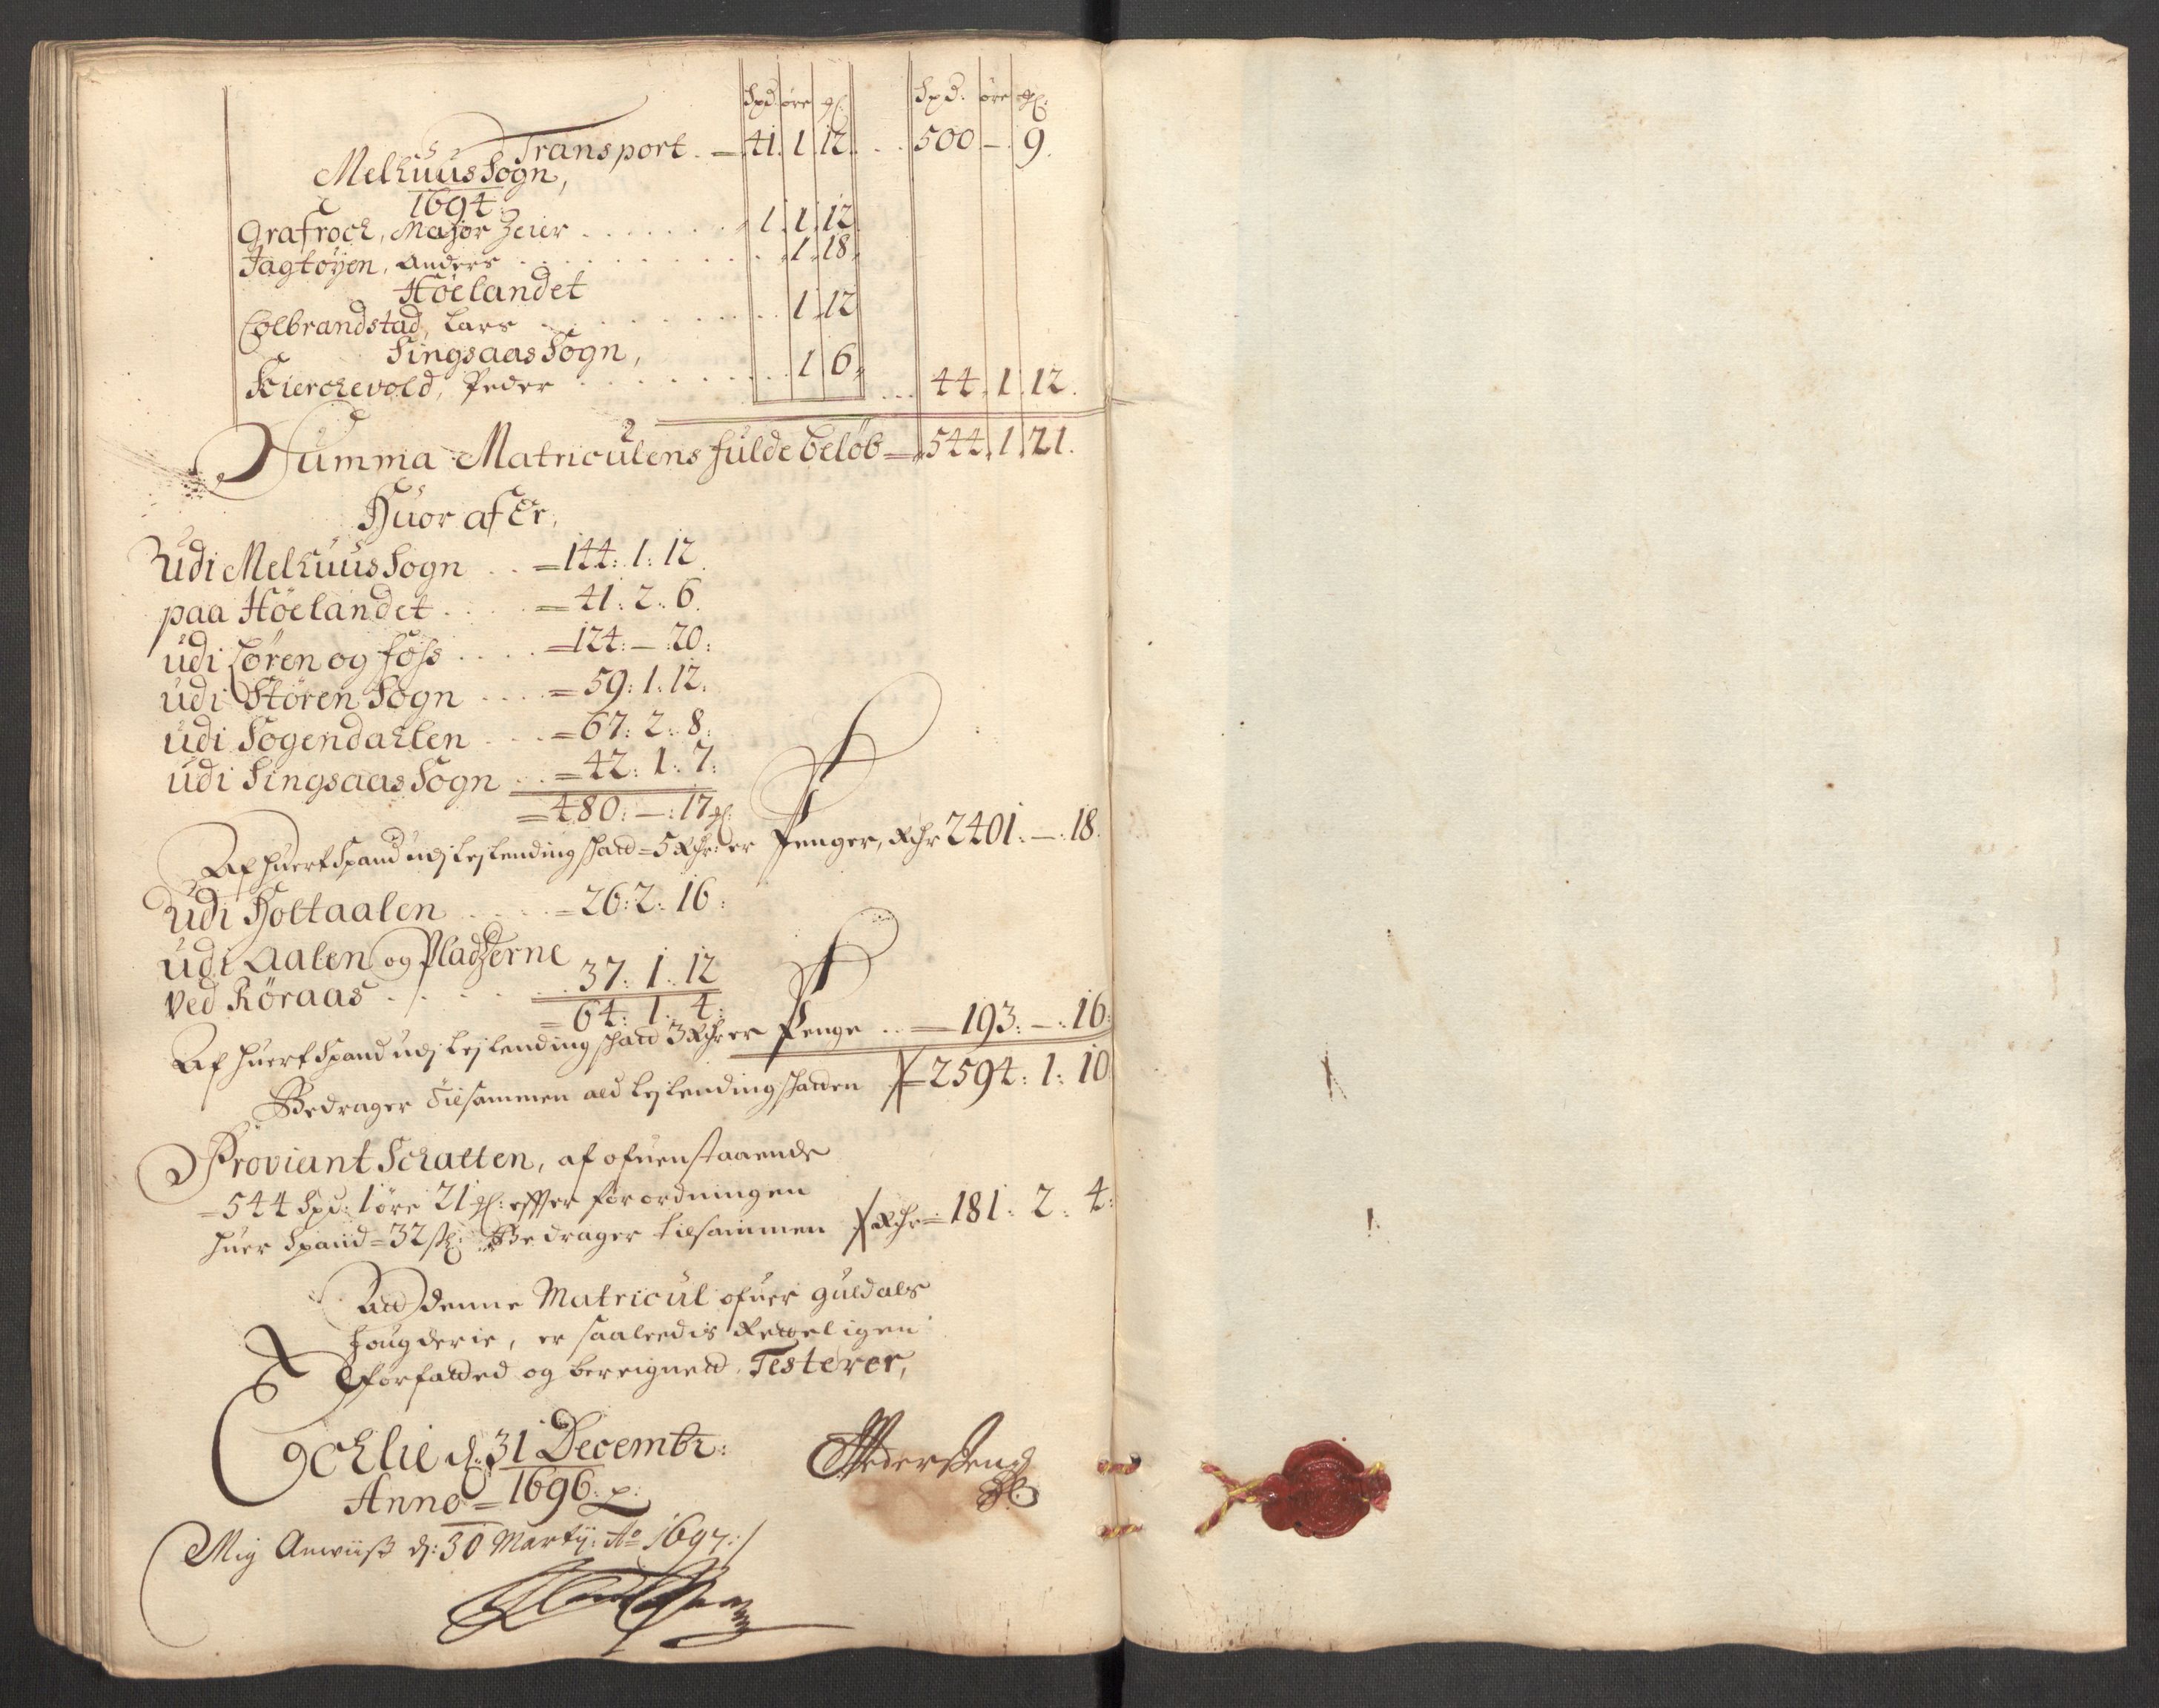 Spd: øre ₰: Spd: øre ₰:
Transport . = 41. 1. 12. . . 500 — 9.
Melhuus Sogn,
1694
Grafroch, Major Zeier . . . . . . 1. 1. 12
Jagtøyen, Anders . . . . . . . . . 1. 18.
Høelandet
Colbrandstad, Lars . . . . . . . . 1. 12
Singsaas Sogn,
Kierchevold, Peder . . . . . . . . 1. 6. . . . 44. 1. 12.
Summa Matriculens fulde beløb = 544. 1. 21.
Huor af Er,
Udi Melhuus Sogn . . = 144: 1: 12.
paa Høelandet . . . . = 41: 2: 6.
udi Løren og Foss . . . . = 124: — : 20:
udi Støren Sogn . . . . = 59: 1: 12.
udi Sogendahlen . . . = 67: 2: 8:
udi Singsaas Sogn . . = 42: 1: 7:
= 480: — : 17 ₰:
Af huert Spand udj Lejlending schatt = 5 Rdr: er Penger, Rdr 2401. — . 18.
Udi Holtaalen . . . . . = 26: 2: 16:
udi Aalen og Pladzerne
ved Røraas . . . . . . 37: 1: 12
= 64: 1: 4:
Af huert Spand udj Lejlending schatt 3 Rdr er Penge . . = 193: — : 16:
Bedrager Tilsammen all Lejlending schatten = 2594: 1: 10
Proviant Schatten, af ofuenstaaende
= 544 Spd: 1 øre 21 ₰: effter forordningen
huer Spand = 32 sk: Bedrager tilsammen Rdr = 181: 2: 4:
Att denne Matricul ofuer Guldals
Fougderie, er saaledis Retteligen
forfatted og bereignett, Testerer,
Gochlie d: 31 Decembr:
Anno = 1696. p:
Peder
Mig Anwiist d: 30 Martij: Ao 1697:/